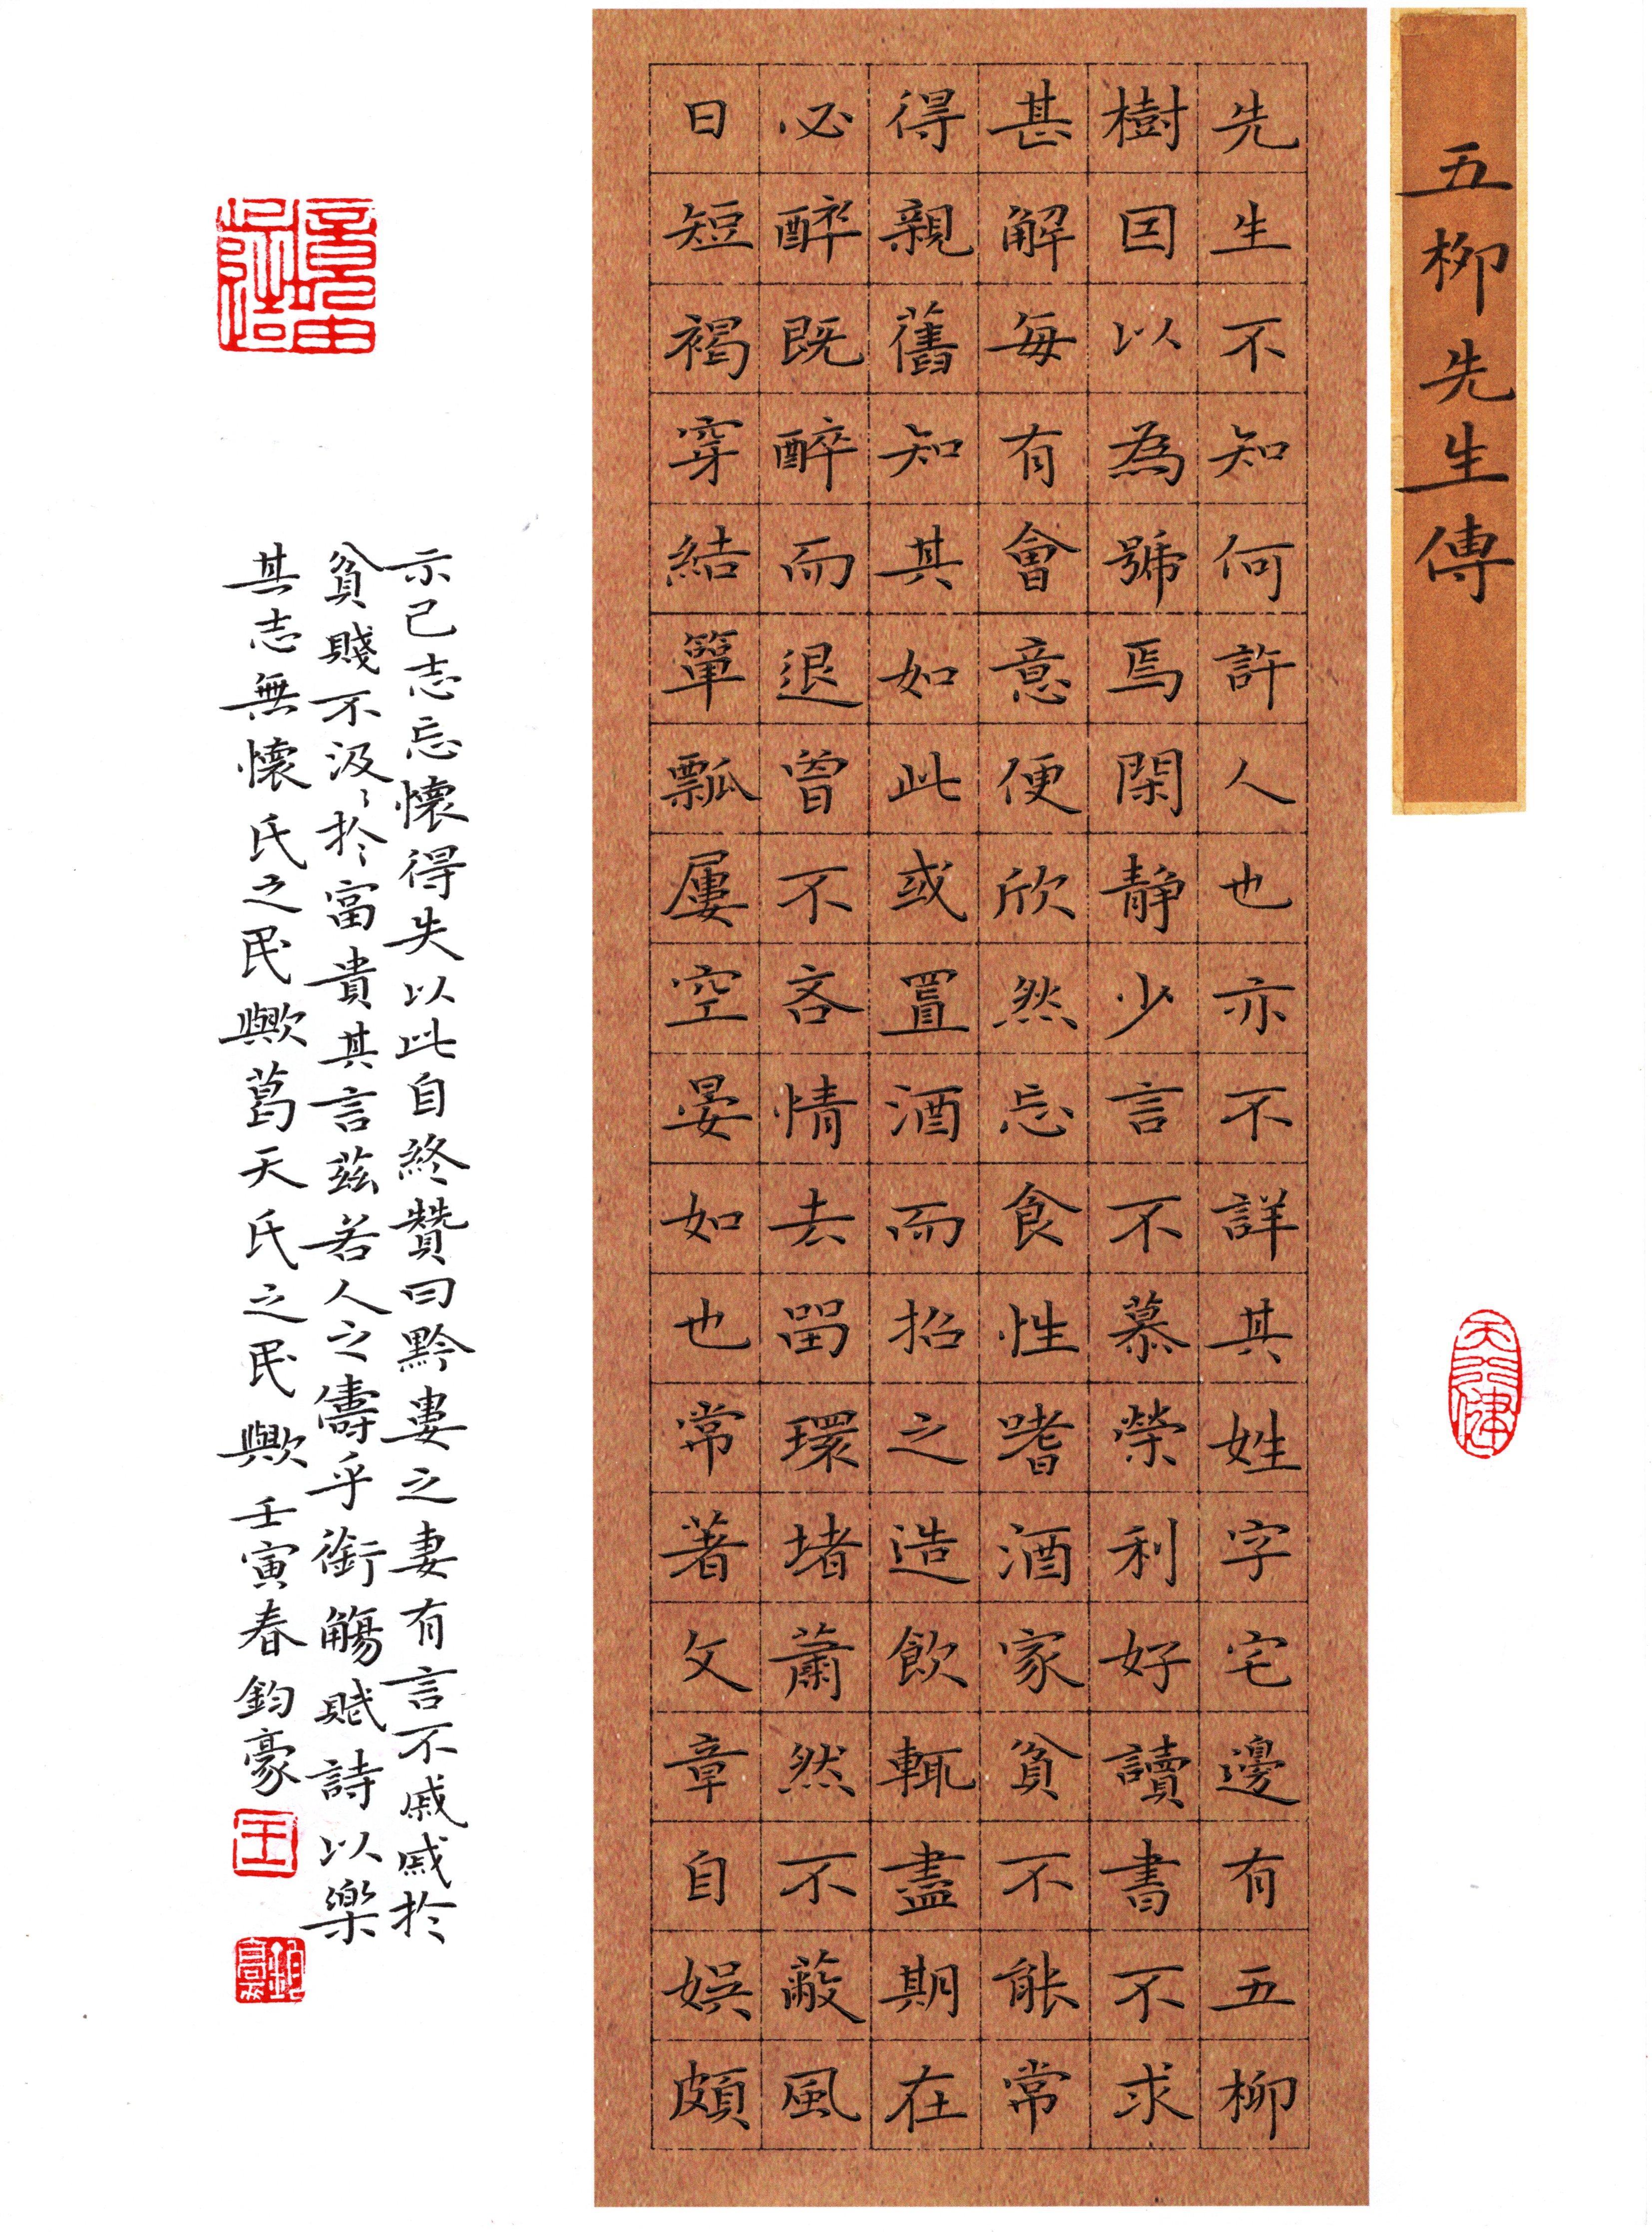 五柳先生傳
天行健
先生不知何許人也亦不詳其姓字宅邊有五柳
樹囙以為號焉閑静少言不慕榮利好讀書不求
甚解每有會意便欣然忘食性嗜酒家貧不能常
得親舊知其如此或置酒而招之造飲輒盡期在
必醉既醉而退曾不吝情去留環堵蕭然不蔽風
日短褐穿結簞瓢屢空晏如也常著文章自娛頗
示己志忘懷得失以此自終贊曰黔婁之妻有言不戚戚於
貧賤不汲〻於富貴其言茲若人之儔乎銜觴賦詩以樂
其志無懷氏之民歟葛天氏之民歟壬寅春鈞豪
王
鈞豪